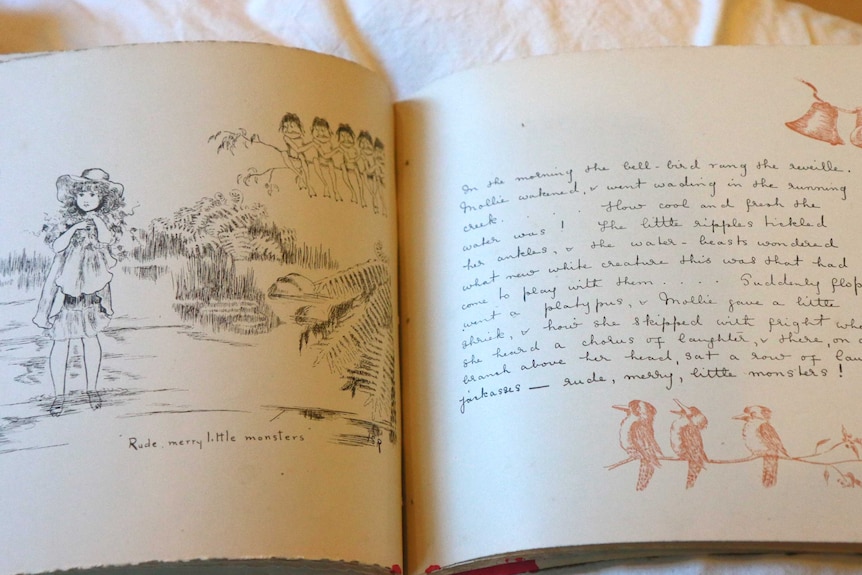 "Rude, merry little monsters"
In the morning the bell-bird rang the reveille.
Mollie wakened, & went wading in the running
creek. . . . . How cool and fresh the
water was! The little ripples tickled
her ankles, & the water-beasts wondered
what new white creature this was that had
come to play with them . . . . Suddenly flop
went a platypus, & Mollie gave a little
shriek, & how she skipped with fright
she heard a chorus of laughter, & there, on
branch above her head, sat a row of
jackasses — rude, merry, little monsters!